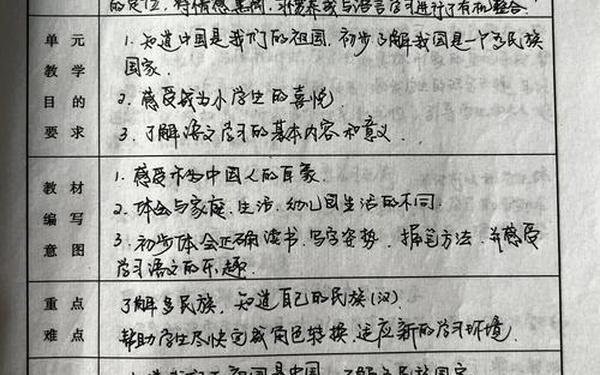 的定位，将情感基调，习惯养成与语言学习进行了有机整合.
单元
教学
目的
要求
1. 知道中国是我们的祖国，初步了解我国是一个多民族
国家.
2. 感受成为小学生的喜悦.
3. 了解语文学习的基本内容和意义.
教材
编写
意图
1. 感受作为中国人的自豪.
2. 体会与家庭.生活.幼儿园生活的不同.
3. 初步体会正确读书、写字姿势、握笔方法，并感受
学习语文的乐趣.
重点
难点
了解多民族，知道自己的民族(汉)
帮助学生尽快完成角色转换，适应新的学习环境.
国是中国 了解